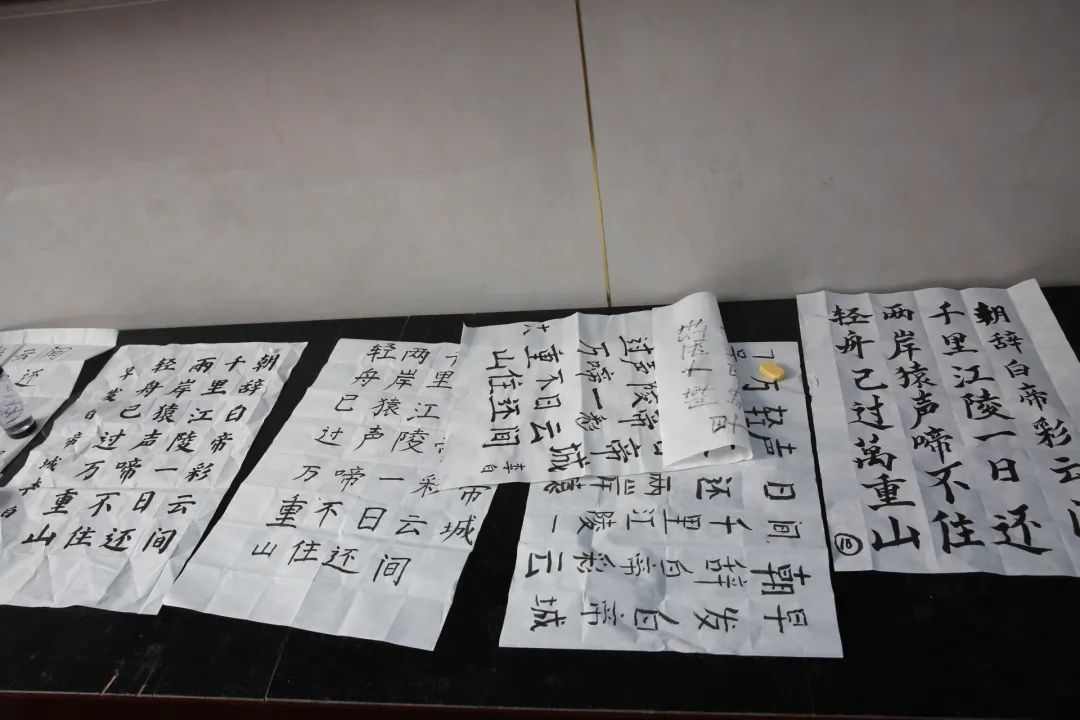 间
云
还
朝辞白帝彩云间
千里江陵一日还
两岸猿声啼不住
轻舟已过万重山
早发白帝城
李白
帝城
彩云间
里江陵一日还
两岸猿声啼不住
轻舟已过万重山
山住还间
重不日云城
万啼一彩
过声陵帝
李白
早发白帝城
朝辞白帝彩云
间千里江陵一
日还两
声
轻
万
朝辞白帝彩云间
千里江陵一日还
两岸猿声啼不住
轻舟已过萬重山
18